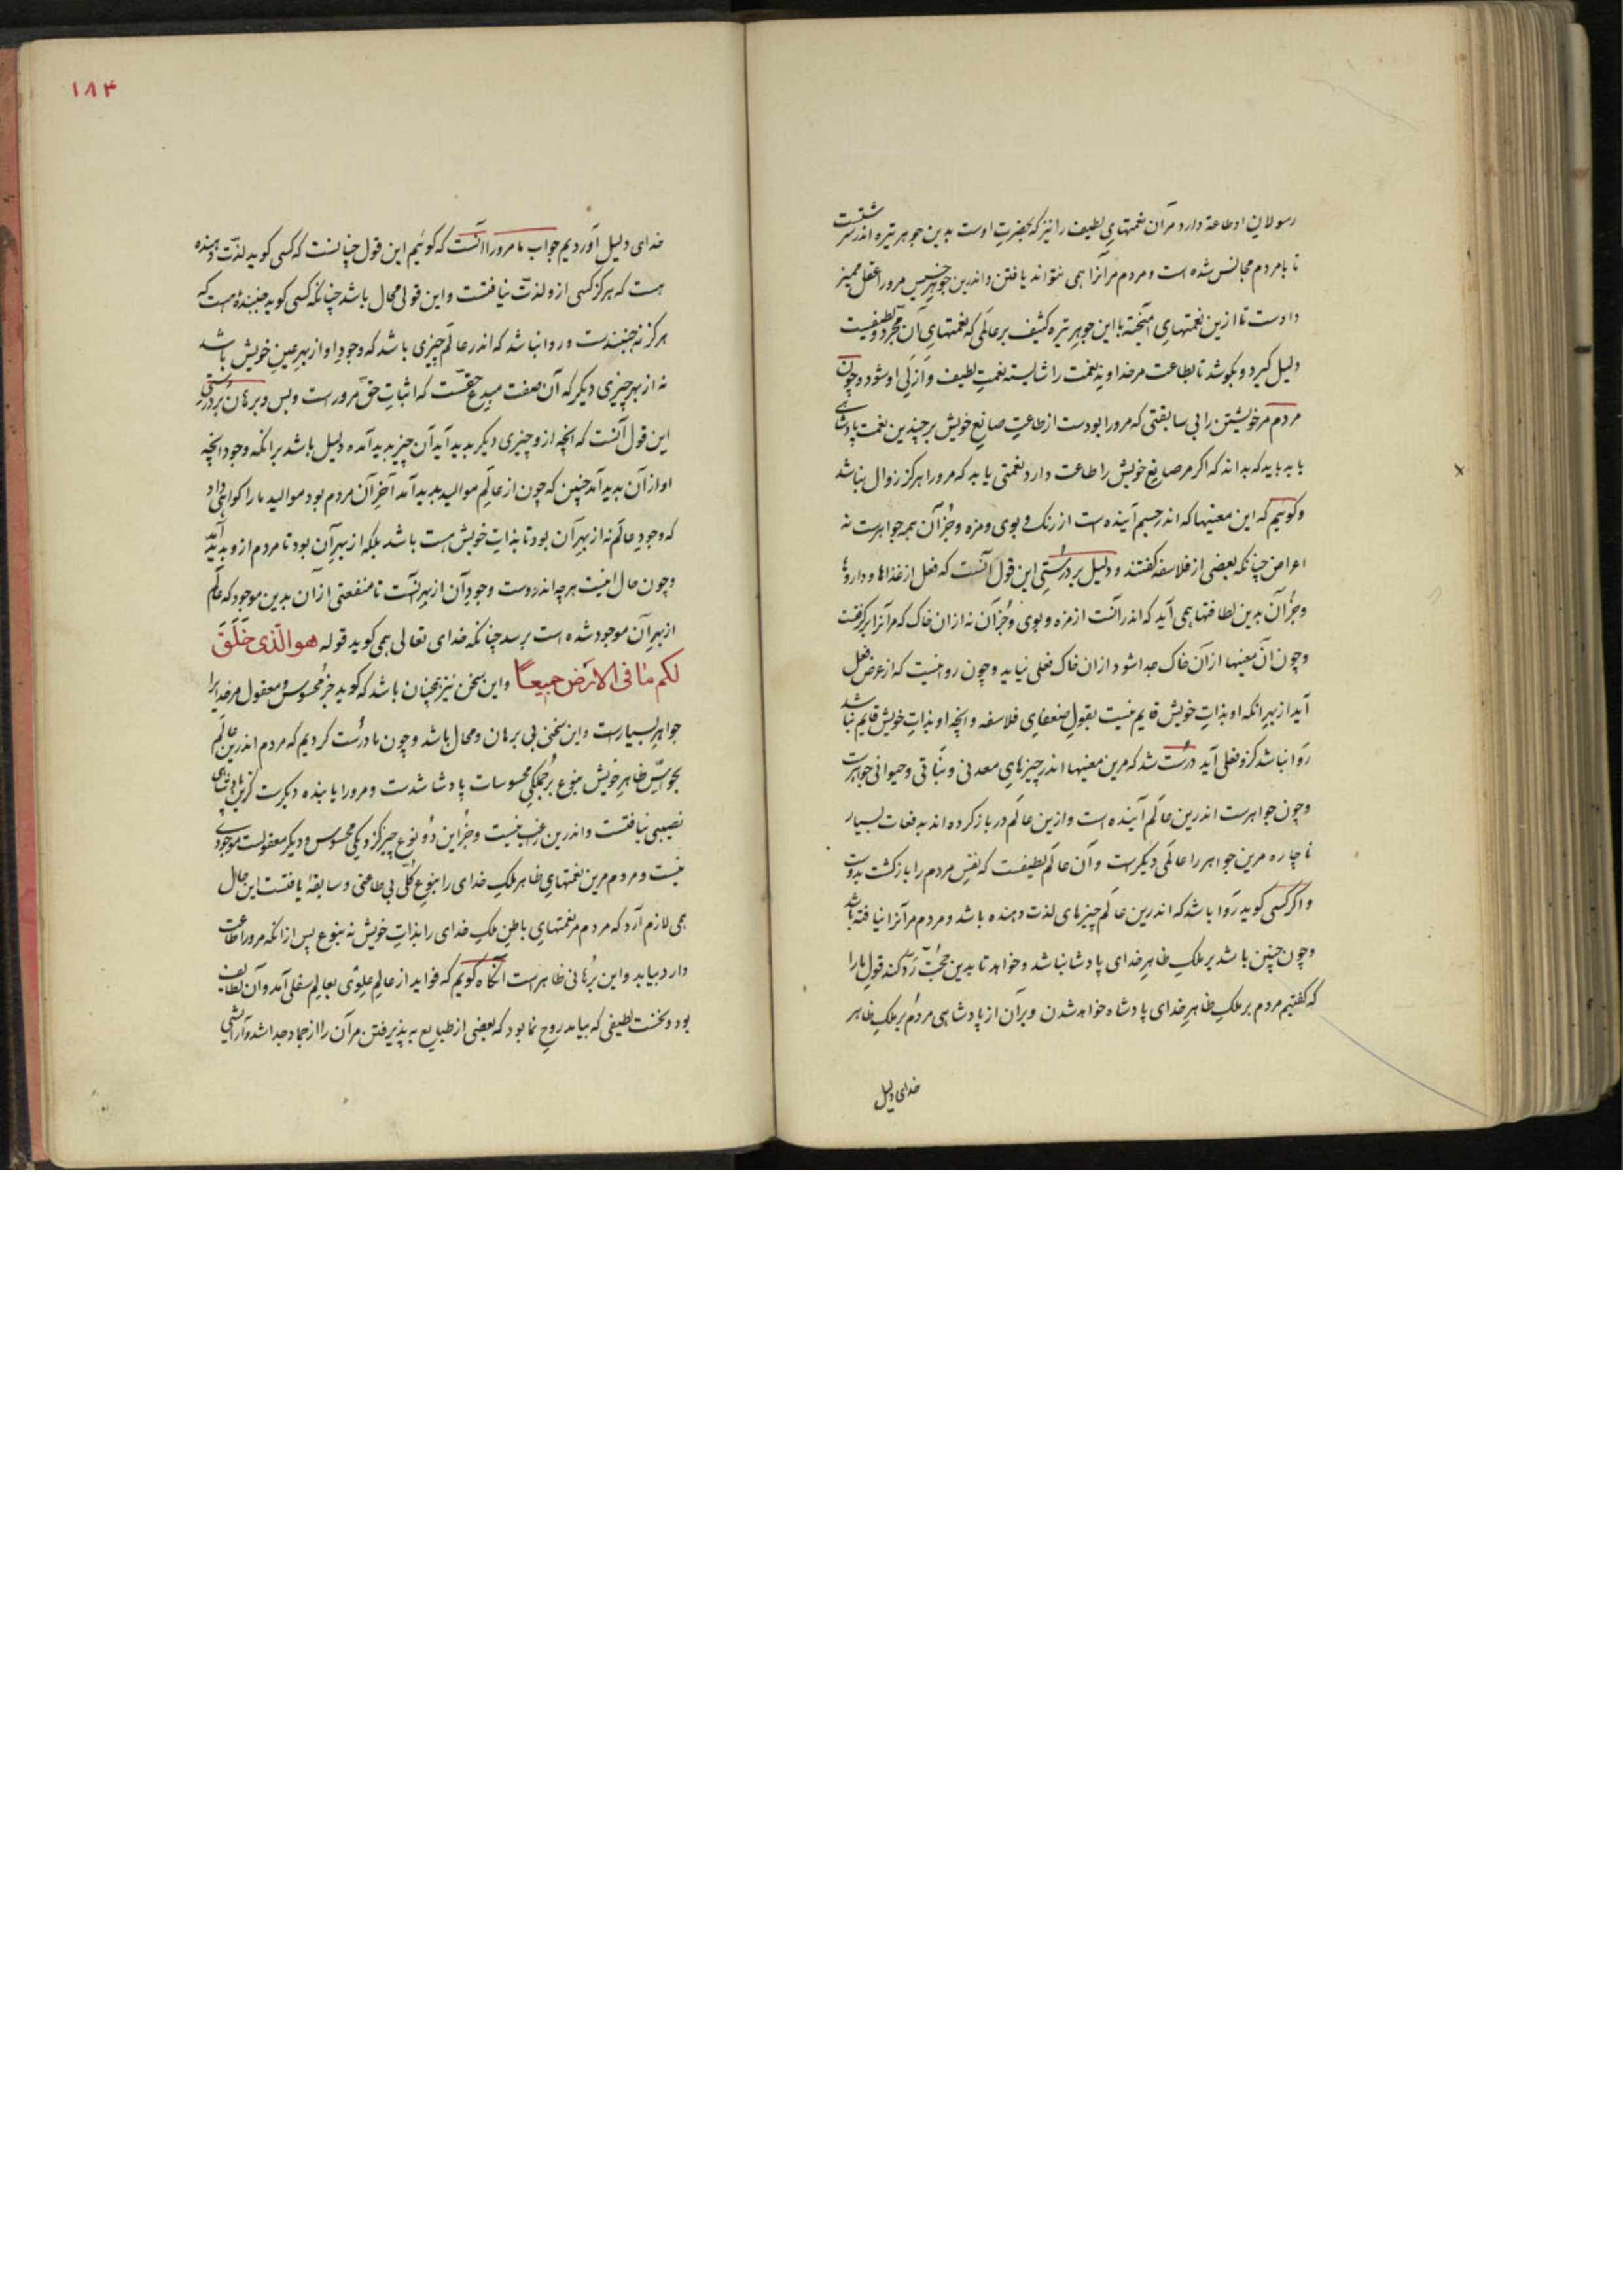 رسولان او طاعة دارد مر آن نعمتهای لطیف را نیز که بحضرت اوست بدین جوهر تیره اندر سرشتست
تا با مردم مجانس شده است و مردم مر آنرا همی نتواند یافتن و اندرین جوهر خسیس مرورا عقل ممیز
دادست تا ازین نعمتهای آمیخته با این جوهر تیره کثیف بر عالمی که نعمتهای آن مجرد و لطیفست
دلیل گیرد و بکوشد تا بطاعت مر خداوند نعمت را شایسته نعمت لطیف و ازلی او شود و چون
مردم مر خویشتن را بی سابقتی که مرورا بودست از طاعت صانع خویش بر چندین نعمت پادشاهی
یابد باید که بداند که اگر مر صانع خویش را طاعت دارد نعمتی یابد که مرورا هرگز زوال نباشد
و گوئیم که این معنیها که اندر جسم آینده است از رنگ و بوی و مزه و جز آن همه جواهرست نه
اعراض چنانکه بعضی از فلاسفه گفتند و دلیل بر درستی این قول آنست که فعل از غذاها و داروها
و جز آن بدین لطافتها همی آید که اندر آنست از مزه و بوی و جز آن نه از ان خاک که مر آنرا بر گرفتست
و چون آن معنیها از ان خاک جدا شود از ان خاک فعلی نیاید و چون روا نیست که از عرض فعل
آید از بهر انکه او بذات خویش قایم نیست بقول ضعفای فلاسفه و انچه او بذات خویش قایم نباشد
روا نباشد کزو فعلی آید درست شد که مرین معنیها اندر چیزهای معدنی و نباتی و حیوانی جواهرست
و چون جواهرست اندرین عالم آینده است و ازین عالم در باز کرده اند بدفعات بسیار
ناچاره مرین جواهر را عالمی دیگرست و آن عالم لطیفست که نفس مردم را بازگشت بدوست
و اگر کسی گوید روا باشد که اندرین عالم چیزهای لذت دهنده باشد و مردم مر آنرا نیافته باشد
و چون چنین باشد بر ملک ظاهر خدای پادشا نباشد و خواهد تا بدین حجت رد کند قول ما را
که گفتیم مردم بر ملک ظاهر خدای پادشاه خواهد شدن و بر آن از پادشاهی مردم بر ملک ظاهر
خدای دلیل
۱۸۴
خدای دلیل آوردیم جواب ما مرورا آنست که گوئیم این قول چنانست که کسی گوید لذت دهنده
هست که هرگز کسی ازو لذت نیافتست و این قولی محال باشد چنانکه کسی گوید جنبنده هست که
هرگز نه جنبیدست و روا نباشد که اندر عالم چیزی باشد که وجود او از بهر عین خویش باشد
نه از بهر چیزی دیگر که آن صفت مبدع حقست که اثبات حق مروراست و بس و برهان بر درستی
این قول آنست که انچه ازو چیزی دیگر بدید آید آن چیز بدید آمده دلیل باشد بر انکه وجود انچه
او از آن بدید آمد چنین که چون از عالم موالید بدید آمد آخر آن مردم بود موالید ما را گواهی داد
که وجود عالم نه از بهر آن بود تا بذات خویش هست باشد بلکه از بهر آن بود تا مردم ازو بدید آید
و چون حال اینست هر چه اندروست وجود آن از بهر آنست تا منفعتی از ان بدین موجود که عالم
از بهر آن موجود شده است برسد چنانکه خدای تعالی همی گوید قوله هو الّذی خَلَقَ
لکم ما فی الارض جمیعًا و این سخن نیز همچنان باشد که گوید جز محسوس و معقول مر خدایرا
جواهر بسیارست و این سخنی بی برهان و محال باشد و چون ما درست کردیم که مردم اندرین عالم
بحواس ظاهر خویش بنوع بر جملگی محسوسات پادشا شدست و مرورا یابنده دیگرست کزین پادشاهی
نصیبی نیافتست و اندرین رغبت نیست و جز این دو نوع چیز کزو یکی محسوس و دیگر معقولست موجودی
نیست و مردم مرین نعمتهای ظاهر ملک خدای را بنوع کلی بی طاعتی و سابقه یافتست این حال
همی لازم آرد که مردم مر نعمتهای باطن ملک خدای را بذات خویش نه بنوع پس از انکه مرورا طاعت
دارد بیابد و این برهانی ظاهرست انگاه گویم که فواید از عالم علوی بعالم سفلی آمد و آن لطایف
بود و نخست لطیفی که بیامد روح نما بود که بعضی از طبایع به پذیرفتن مر آن را از جماد جدا شد و آرایشی